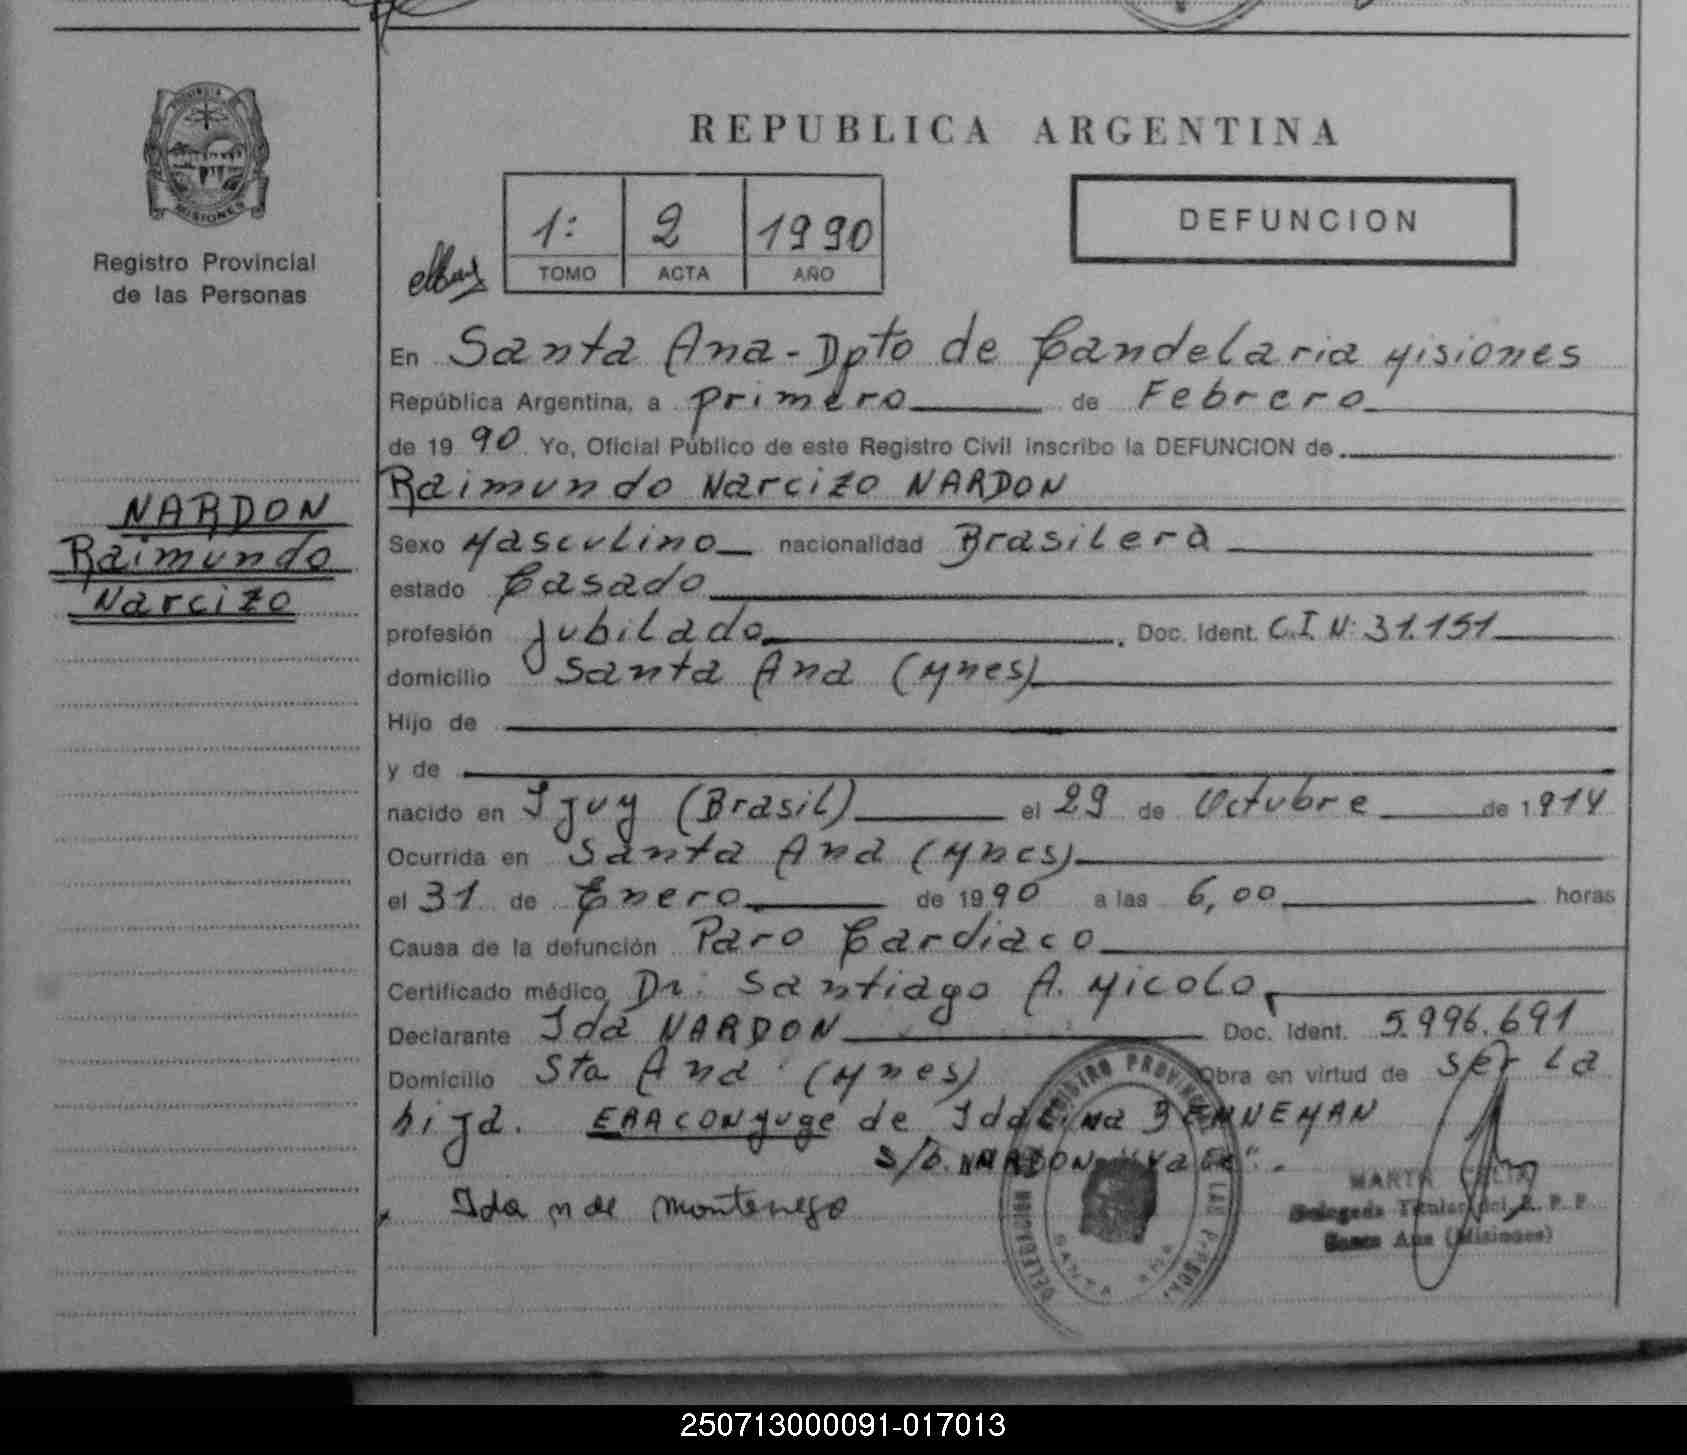 REPUBLICA ARGENTINA
PROVINCIA DE
MISIONES
Registro Provincial
de las Personas
1: 2 1990
TOMO ACTA AÑO
DEFUNCION
En Santa Ana - Dpto de Candelaria Misiones
República Argentina, a primero de Febrero
de 1990 Yo, Oficial Público de este Registro Civil inscribo la DEFUNCION de
Raimundo Narcizo NARDON
NARDON
Raimundo
Narcizo
Sexo Masculino nacionalidad Brasilera
estado Casado
profesión jubilado. Doc. Ident. C.I. N: 31.151
domicilio Santa Ana (Mnes)
Hijo de
y de
nacido en Ijuy (Brasil) el 29 de Octubre de 1914
Ocurrida en Santa Ana (Mnes)
el 31 de Enero de 1990 a las 6,00 horas
Causa de la defunción Paro Cardiaco
Certificado médico Dr. Santiago A. Micolo,
Declarante Ida NARDON Doc. Ident. 5.996.691
Domicilio Sta Ana (Mnes) Obra en virtud de ser la
hija. ERA CONyuge de
s/b. NARDON "vale".
Ida n de Montenego
REGISTRO PROVINCIAL DE LAS PERSONAS
DELEGACION
SANTA ANA
MARTA
Delegada Titular del R. P. P.
Santa Ana (Misiones)
250713000091-017013